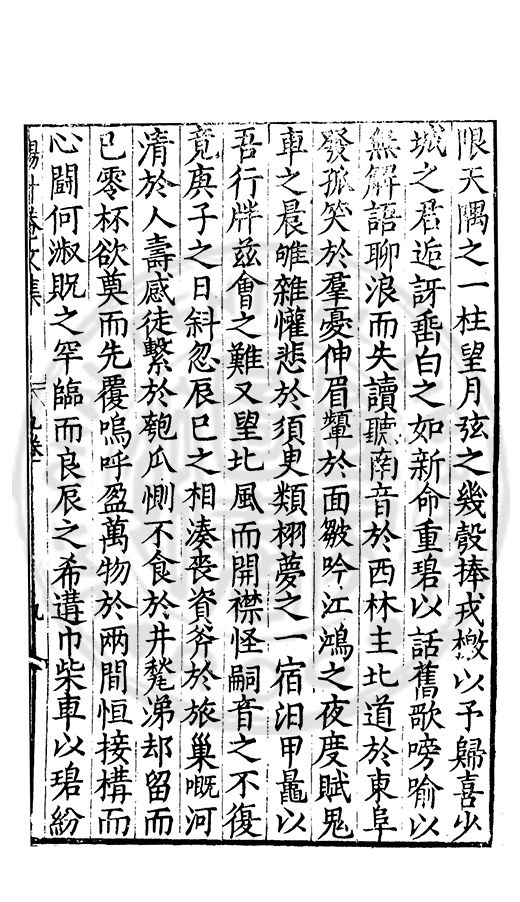 限天隅之一柱望月弦之幾彀捧戎檄以予歸喜少
城之君逅訝垂白之如新命重碧以話舊歌嗙喻以
無解語聊浪而失讀聽南音於西林主北道於東阜
發孤笑於羣憂伸眉顰於面皺吟江鴻之夜度賦鬼
車之晨雊雜懽悲於須臾類栩夢之一宿汨甲鼂以
吾行牂兹會之難又望北風而開襟怪嗣音之不復
竟庚子之日斜忽辰巳之相湊喪資斧於旅巢嘅河
清於人壽感徒繫於匏瓜惻不食於井甃涕却留而
已零杯欲奠而先覆嗚呼盈萬物於兩間恒接構而
心鬬何淑貺之罕臨而良辰之希遘巾柴車以碧紛
楊升菴文集 九卷 九